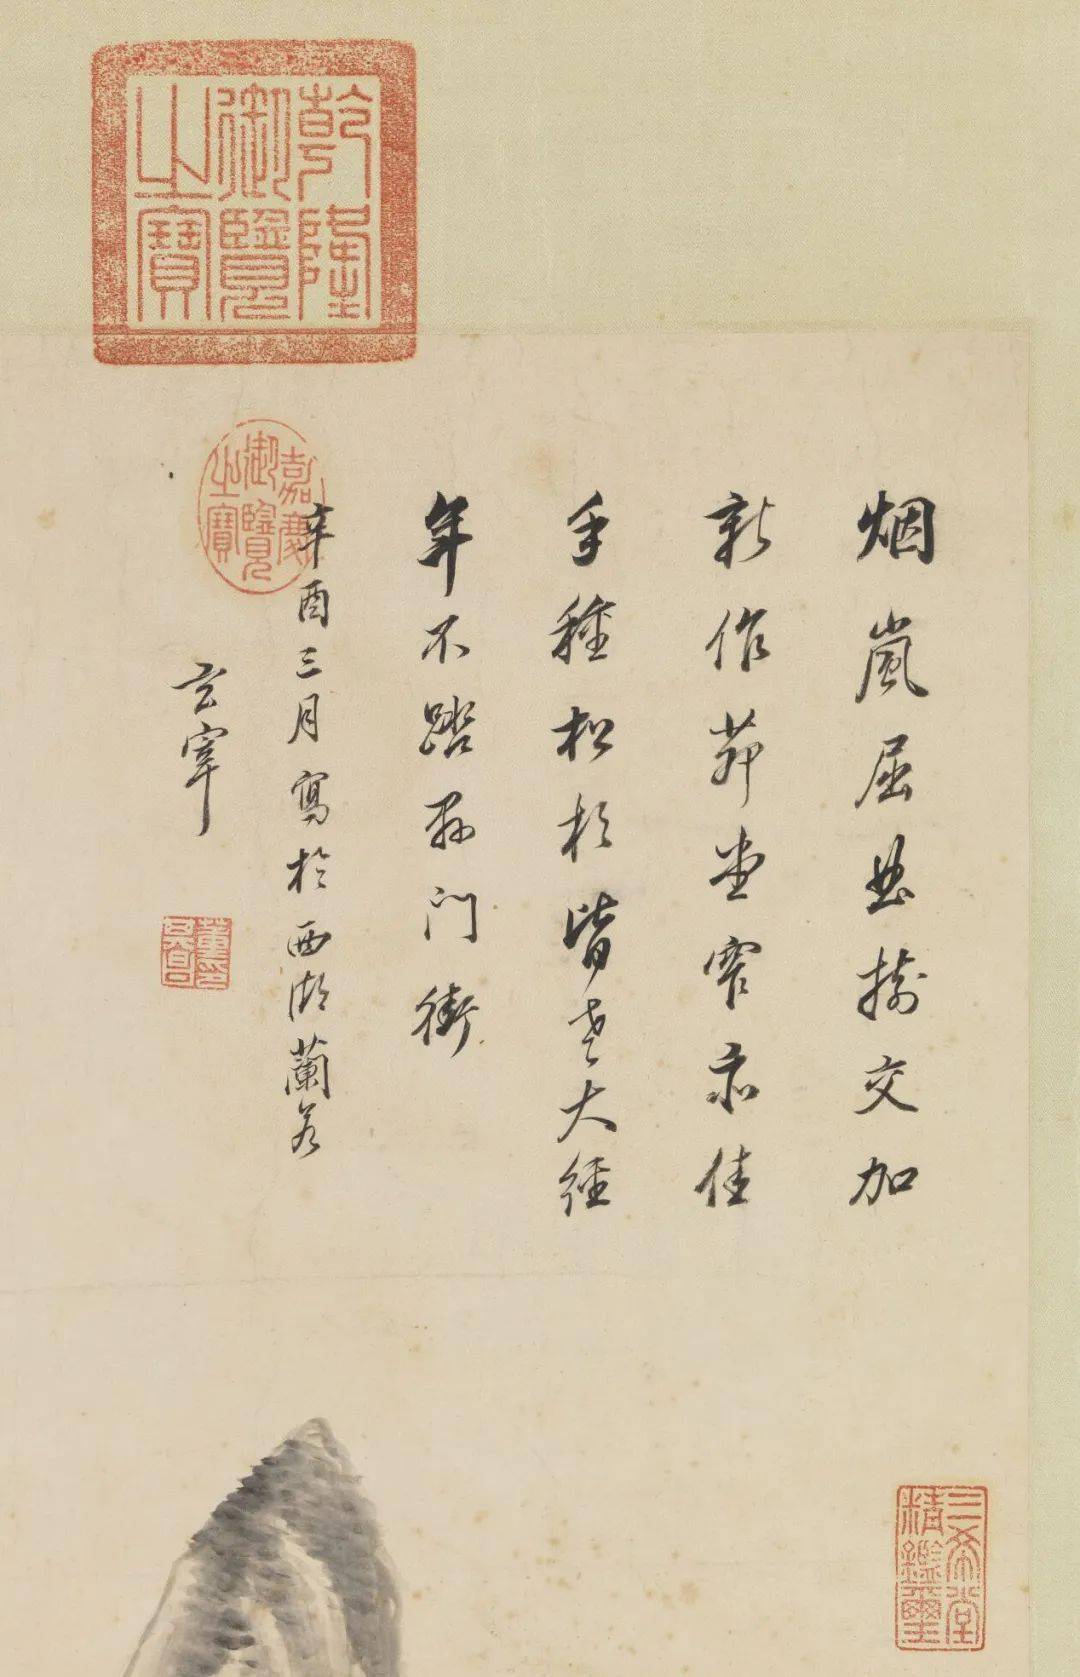 乾隆
御覽
之寶
嘉慶
御覽
之寶
烟嵐屈曲樹交加
新作茆堂窄亦佳
手種松杉皆老大經
年不踏縣門街
辛酉三月寫於西湖蘭若
玄宰
董其昌印
三希堂
精鑑璽